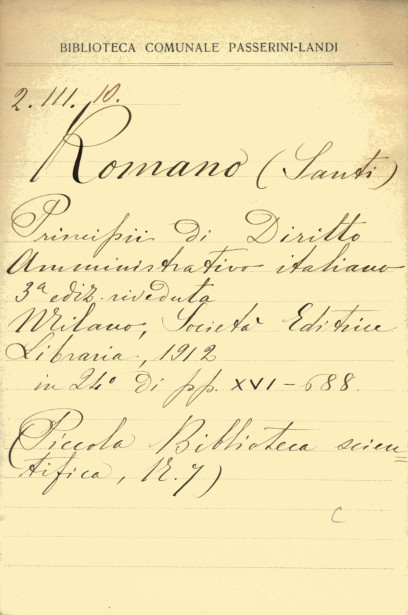 BIBLIOTECA COMUNALE PASSERINI-LANDI
2. III. 10.
Romano (Santi)
Principii di Diritto
Amministrativo italiano
3ª ediz. riveduta
Milano, Società Editrice
Libraria, 1912
in 24º di pp. XVI-688.
(Piccola Biblioteca scien=
tifica, N. 7)
C